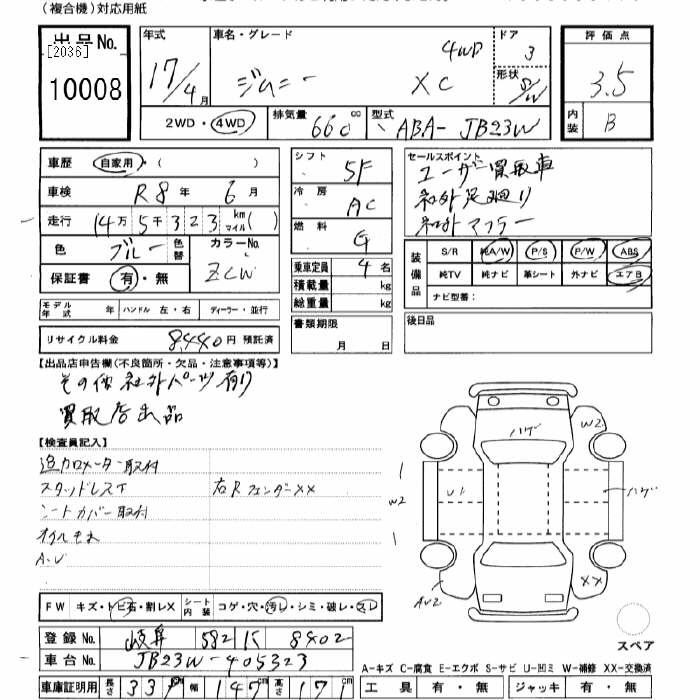 (複合機)対応用紙
出品No. [2036] 10008
年式 17/4月
車名・グレード ジムニー 4WD XC
ドア 3
形状 D/W
評価点 3.5
内装 B
2WD・4WD
排気量 660 cc
型式 ABA-JB23W
車歴 自家用・( )
車検 R8年 6月
走行 14万5千323 km マイル( )
色 ブルー 色替
カラーNo. ZCW
保証書 有・無
モデル年式 年 ハンドル 左・右 ディーラー・並行
リサイクル料金 8,440円 預託済
シフト 5F
冷房 AC
燃料 G
乗車定員 4名
積載量 kg
総重量 kg
書類期限 月 日
セールスポイント
ユーザー買取車
社外足廻り
社外マフラー
装備品 S/R 純A/W P/S P/W ABS
純TV 純ナビ 革シート 外ナビ エアB
ナビ型番:
後日品
【出品店申告欄(不良箇所・欠品・注意事項等)】
その他社外パーツ有り
買取店出品
【検査員記入】
追加メーター取付
スタッドレスT 右Rフェンダーxx
シートカバー取付
オイルモレ
A・U
FW キズ・トビ石・割レX シート内装 コゲ・穴・汚レ・シミ・破レ・スレ
登録No. 岐阜 582 ls 8402
車台No. JB23W-405323
車庫証明用 長さ 339cm 幅 147cm 高さ 171cm
ハゲ
W2
1
W2
U1
ハゲ
1
AU2
XX
スペア
A-キズ C-腐食 E-エクボ S-サビ U-凹ミ W-補修 XX-交換済
工具 有・無 ジャッキ 有・無